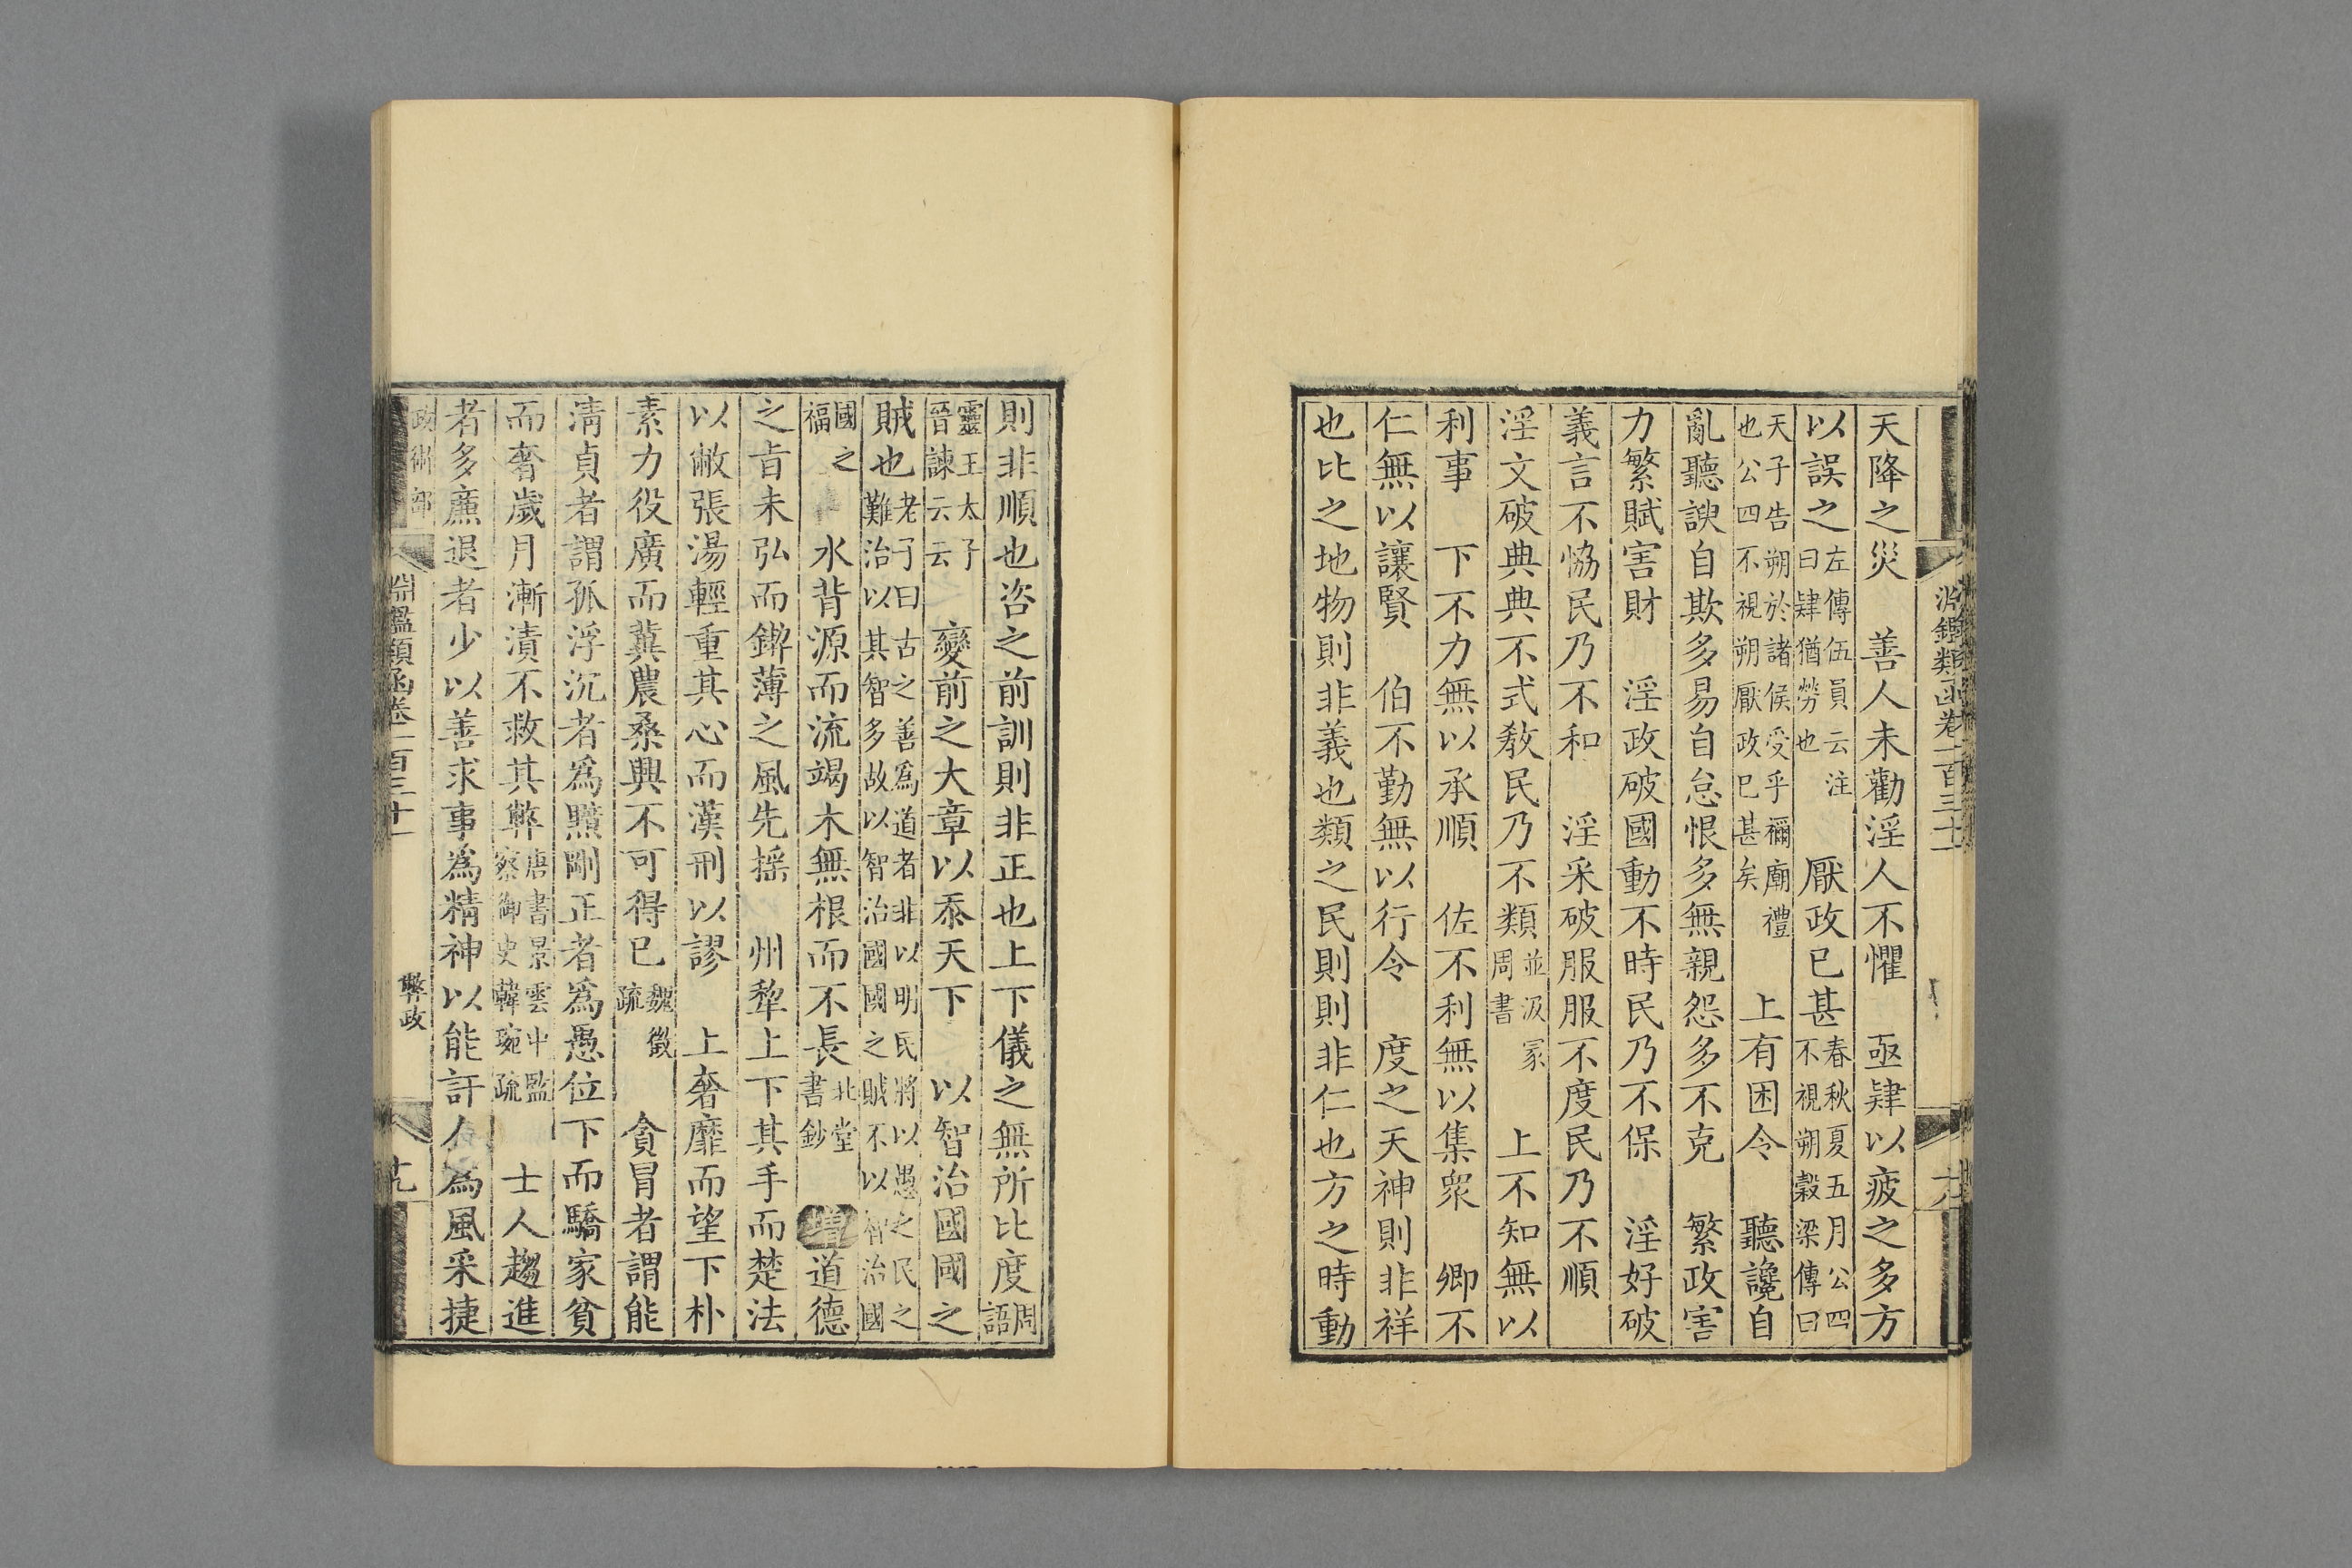 淵鑑類函卷一百三十一
天降之災　善人未勸淫人不懼　亟肄以疲之多方
以誤之左傳伍員云注曰肄猶勞也　厭政已甚春秋夏五月公四不視朔穀梁傳曰
天子告朔於諸侯受乎禰廟禮也公四不視朔厭政巳甚矣　上有困令　聽讒自
亂聽諛自欺多易自怠恨多無親怨多不克　繁政害
力繁賦害財　淫政破國動不時民乃不保　淫好破
義言不恊民乃不和　淫采破服服不度民乃不順
淫文破典典不式教民乃不類並汲冢周書　上不知無以
利事　下不力無以承順　佐不利無以集衆　卿不
仁無以讓賢　伯不勤無以行令　度之天神則非祥
也比之地物則非義也類之民則則非仁也方之時動
則非順也咨之前訓則非正也上下儀之無所比度周語
靈王太子晉諫云云　變前之大章以忝天下　以智治國國之
賊也老子曰古之善為道者非以明民將以愚之民之難治以其智多故以智治國國之賊不以智治國
國之福　水背源而流竭木無根而不長北堂書鈔　增道德
之旨未弘而鍥薄之風先搖　州犂上下其手而楚法
以敝張湯輕重其心而漢刑以謬　上奢靡而望下朴
素力役廣而冀農桑興不可得已魏徵疏　貪冒者謂能
清貞者謂孤浮沉者為黠剛正者為愚位下而驕家貧
而奢歲月漸漬不救其弊唐書景雲中監察御史韓琬疏　士人趨進
者多廉退者少以善求事為精神以能訐人為風采捷
政術部　淵鑑類函卷一百三十一　弊政